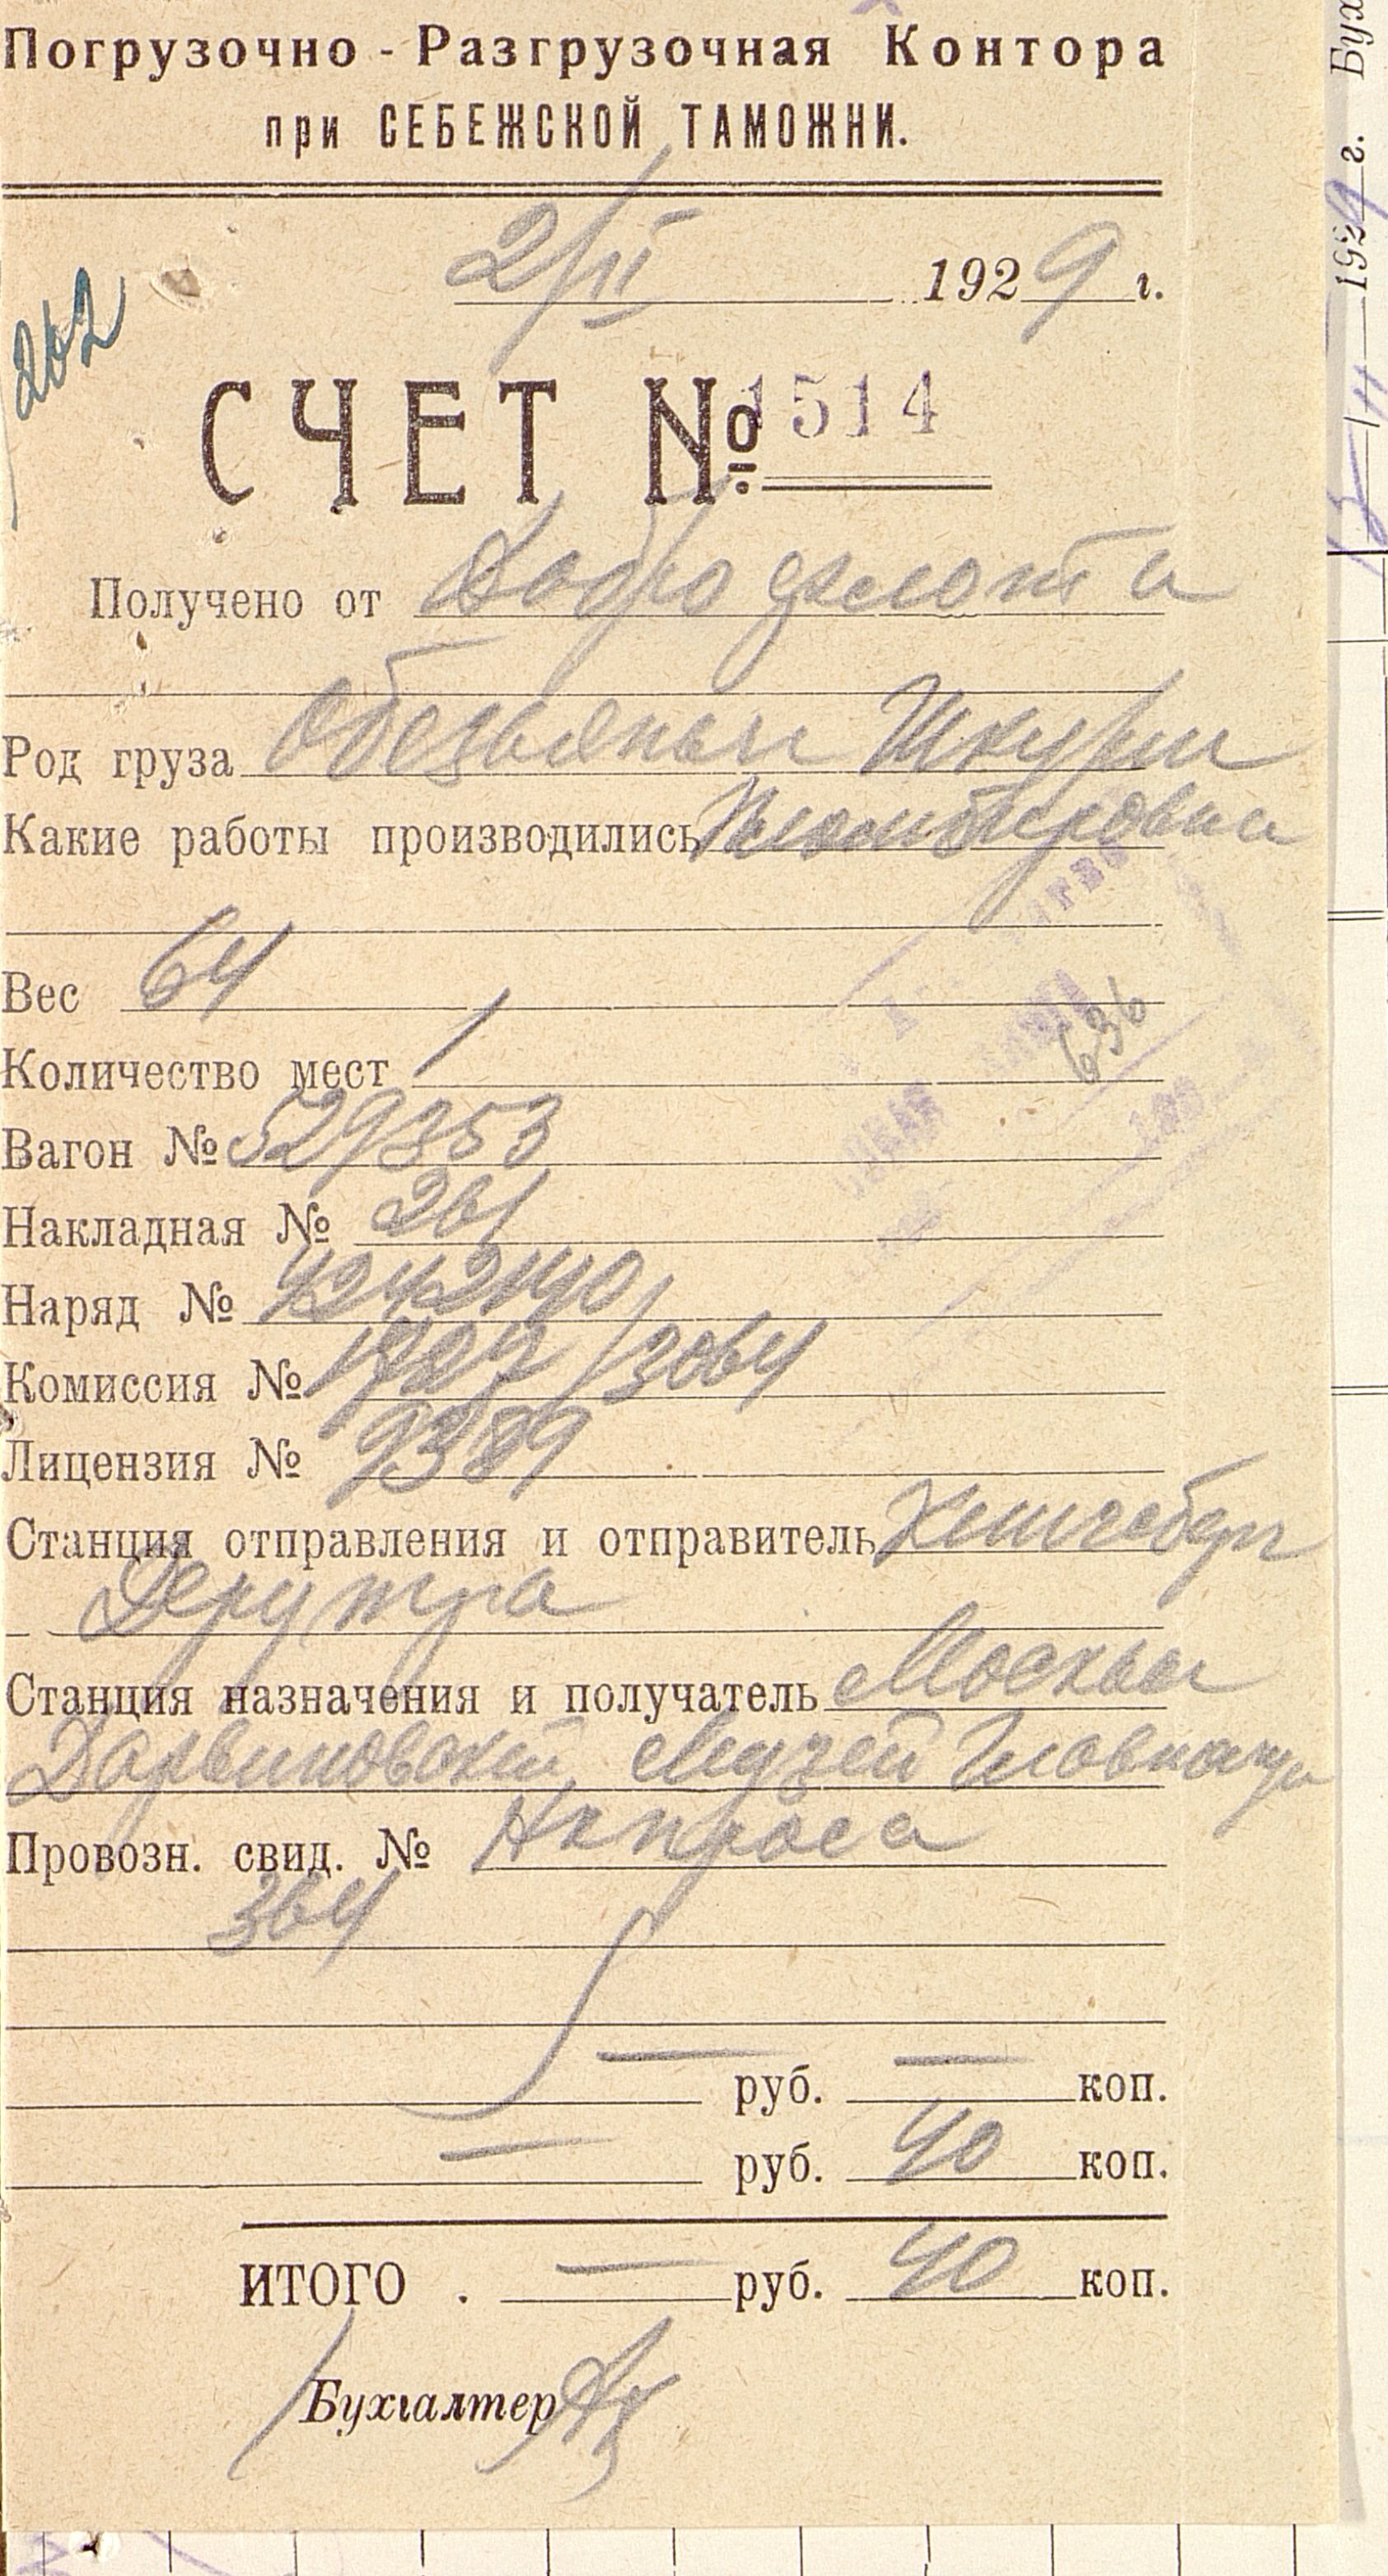 Погрузочно - Разгрузочная Контора
при СЕБЕЖСКОЙ ТАМОЖНИ.
2/II 1929 г.
262
СЧЕТ № 1514
Получено от Доброфлота
Род груза Обезьяньи Шкуры
Какие работы производились Пломбировка
Вес 64
636
Количество мест 1
Вагон № 529353
Накладная № 261
Наряд №
Комиссия № 1727/3064
Лицензия № 9389
Станция отправления и отправитель
Дерутра
Станция назначения и получатель Москвы
Дарвиновский Музей Главнауки
Провозн. свид. № Нкпроса
364
— руб. — коп.
— руб. 40 коп.
ИТОГО . — руб. 40 коп.
Бухгалтер